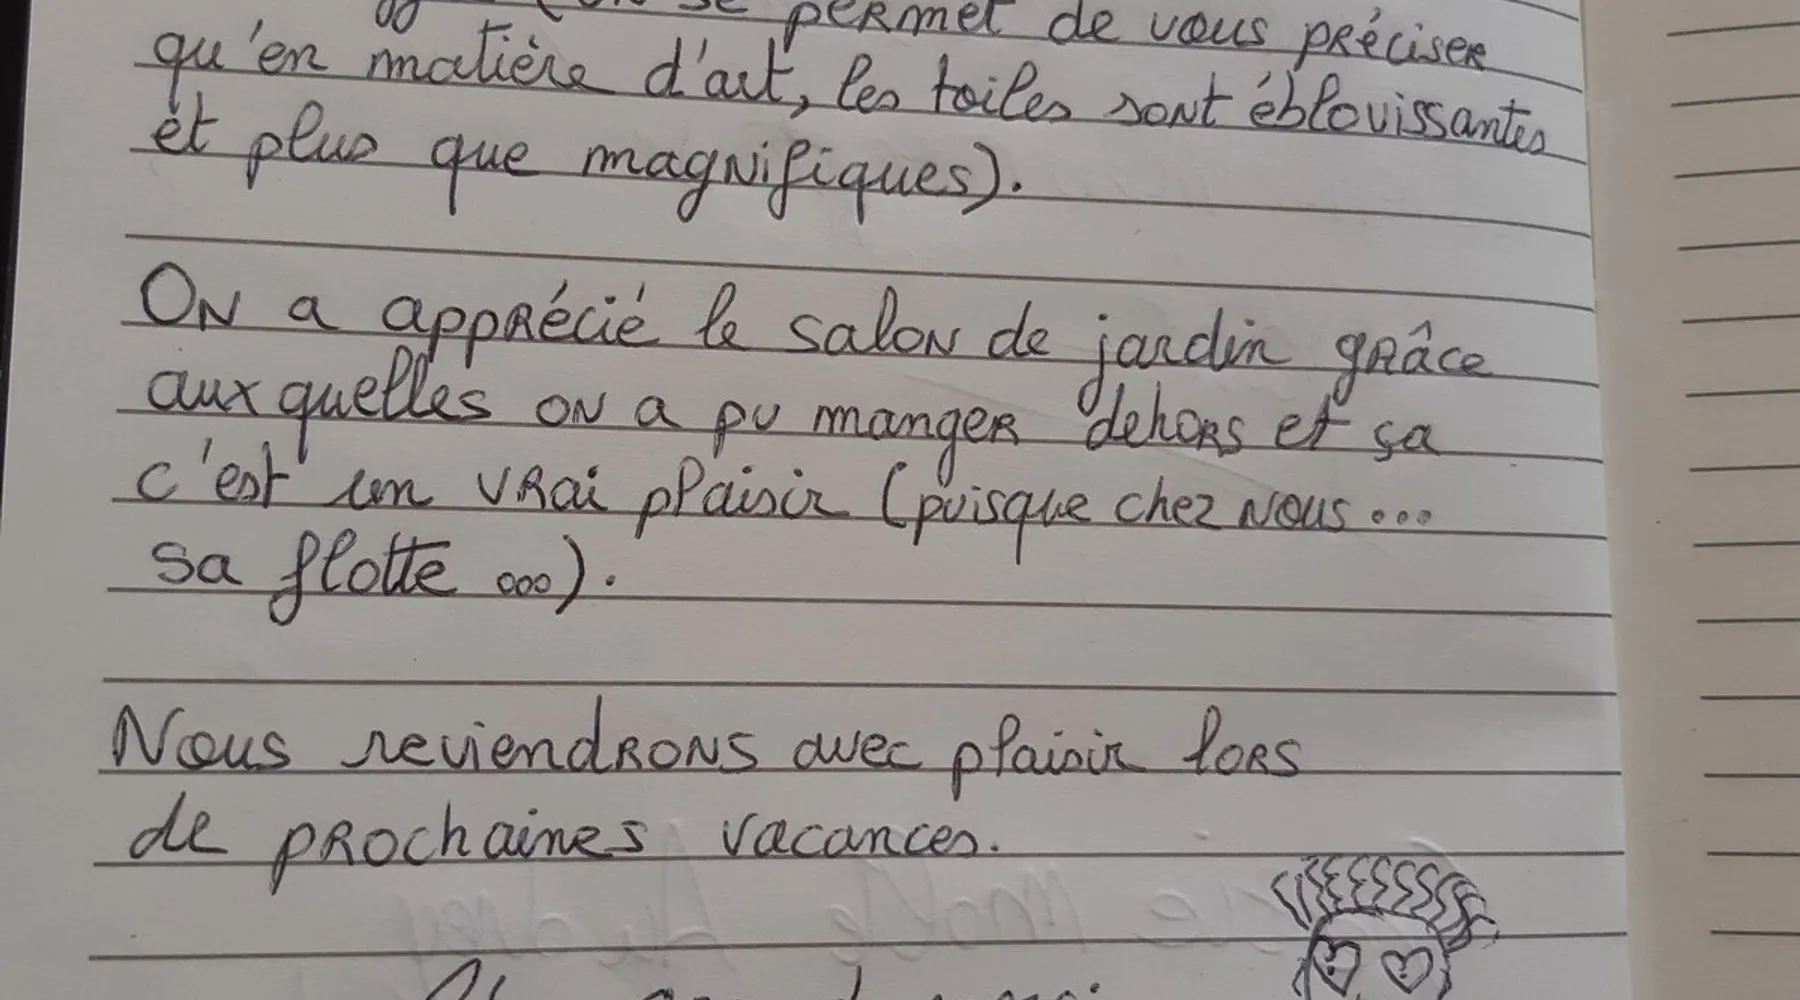 se permet de vous préciser
qu'en matière d'art, les toiles sont éblouissantes
et plus que magnifiques).
On a apprécié le salon de jardin grâce
auxquelles on a pu manger dehors et sa
c'est un vrai plaisir (puisque chez nous...
sa flotte ...).
Nous reviendrons avec plaisir lors
de prochaines vacances.